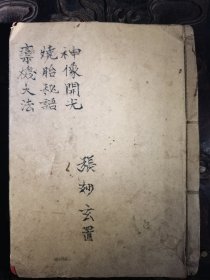 神像開光
燒胎秘語
禀機大法
張妙玄置